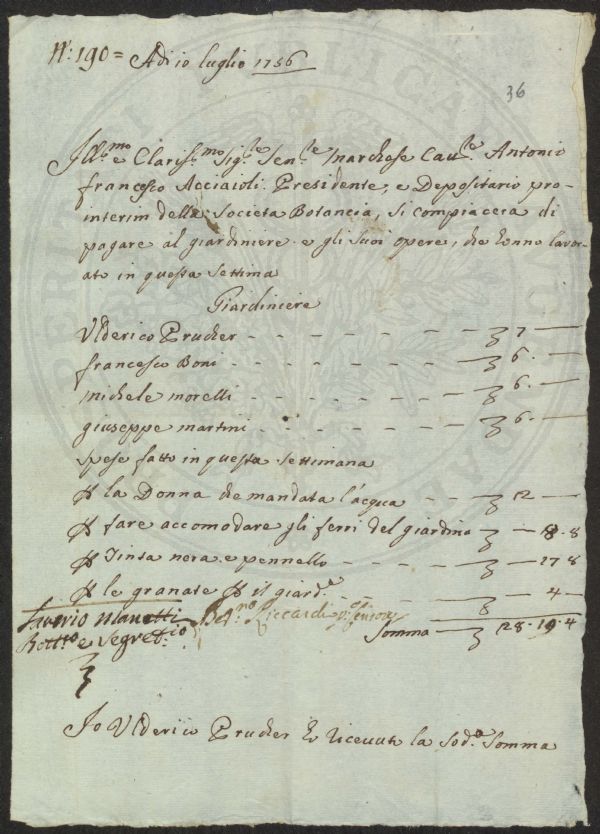 N.º 190 = Adi 10 luglio 1756
36
Ill.mo e Clariss.mo Sig.re Sen.re Marchese Cav.re Antonio
francesco Acciaioli Presidente, e Depositario pro-
interim della Societa Botancia, si compiacera di
pagare al giardiniere e gli suoi opere, che hanno lavor-
ato in questa settima
Giardiniere
Ulderico Prucher - - - - - - - 7 —
francesco Boni - - - - - - - 6 . —
michele morelli - - - - - - - 6 . —
giuseppe martini - - - - - - - 6 . —
spese fatto in questa settimana
P la Donna che mandata l'acqua - - - 2 —
P fare accomodare gli ferri del giardino — 18 . 8
P Tinta nera e pennello - - - - — 17 8
P le granate P il giard.e - - - — 4 —
Saverio Manetti B.no Riccardi
Bott.o e Segret.io Somma — 28 . 19 . 4
Io Ulderico Prucher ho riceuuto la sod.a Somma
PERITIA